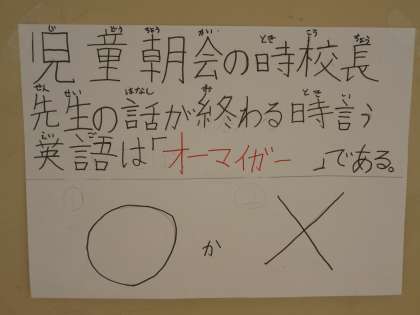 児童朝会の時校長
先生の話が終わる時言う
英語は「オーマイガー」である。
○か×